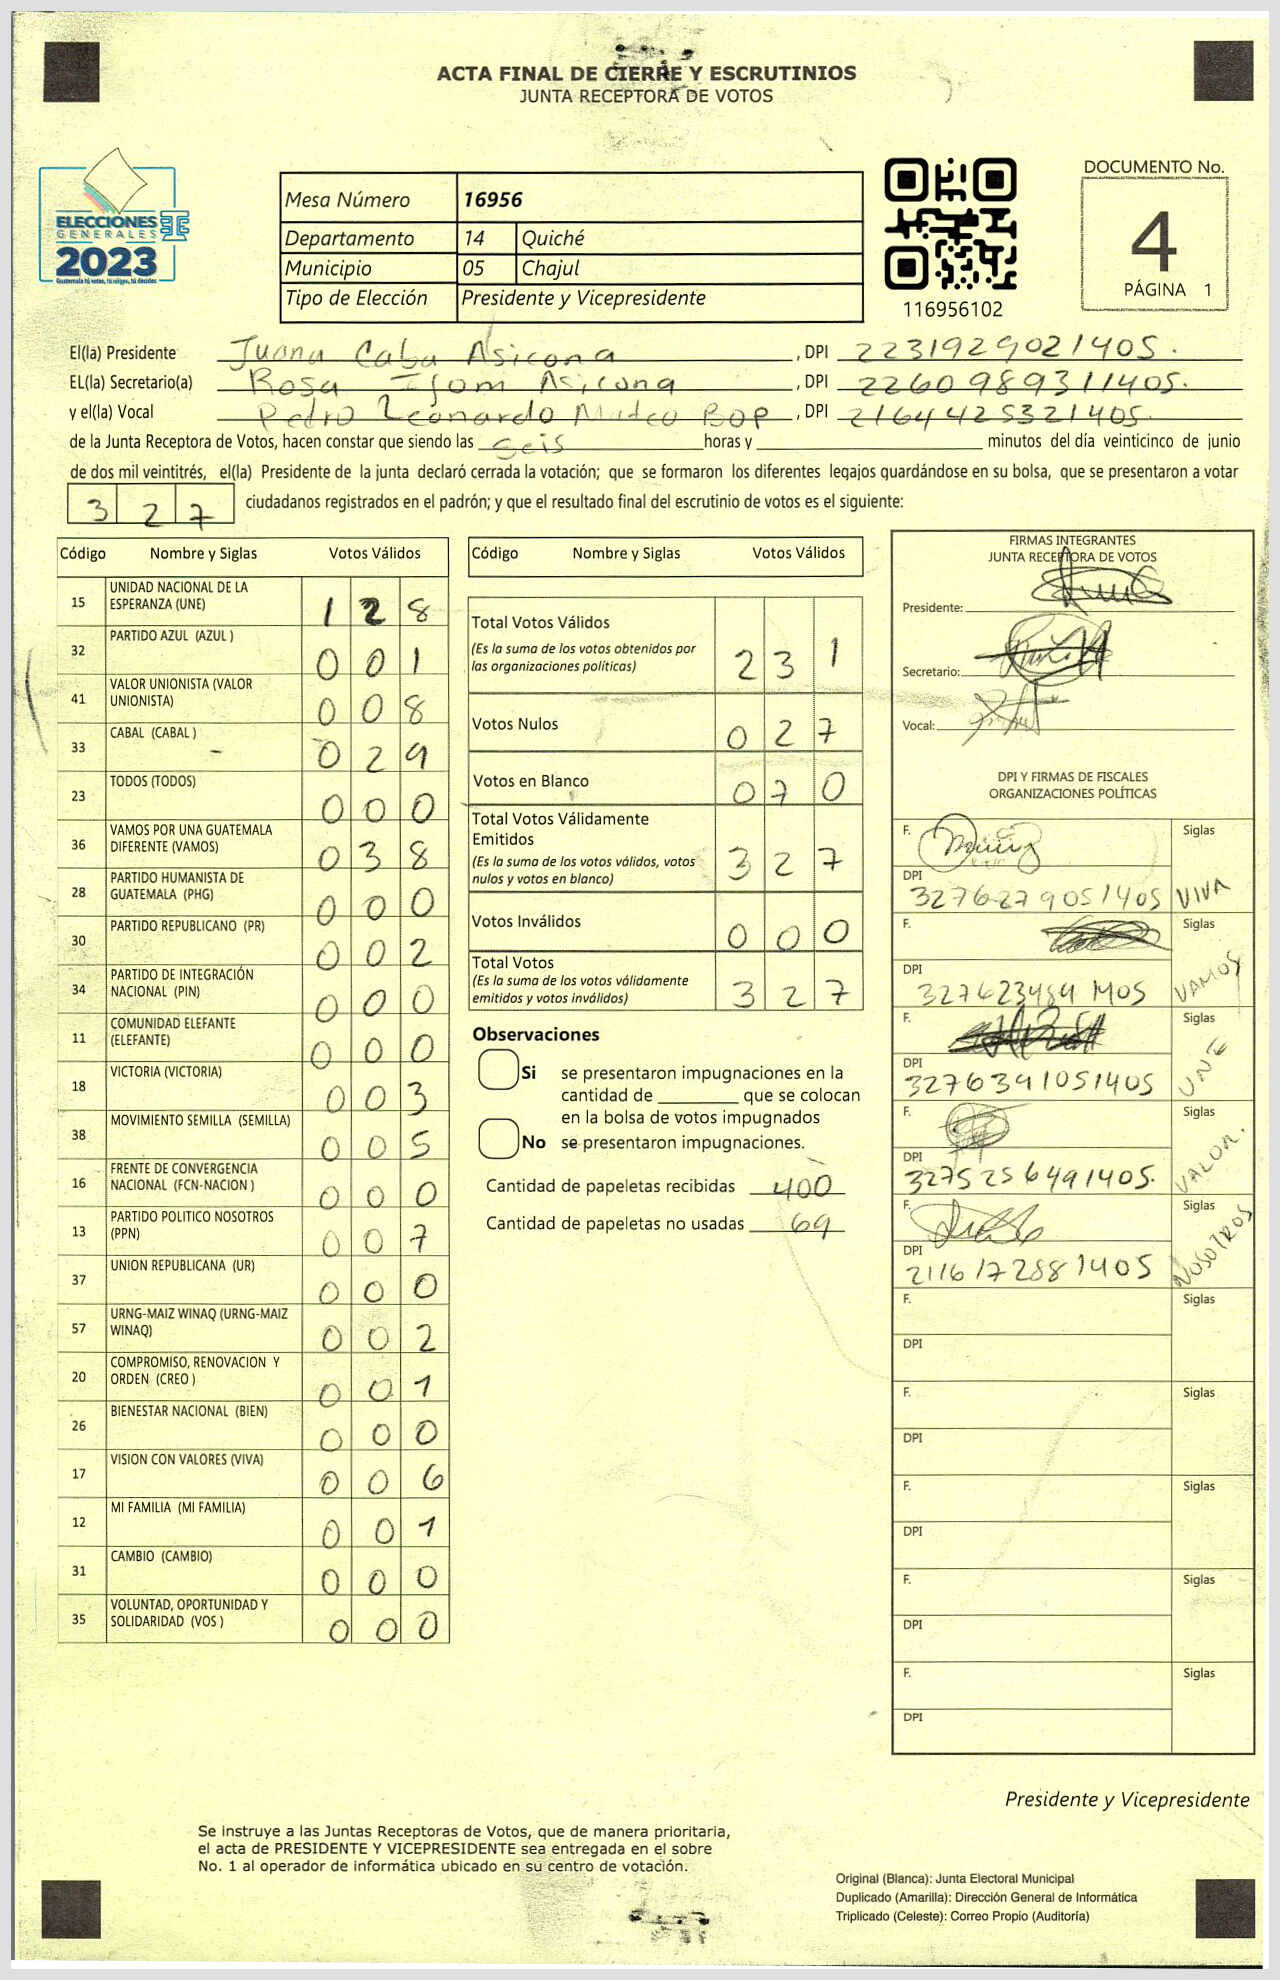 ACTA FINAL DE CIERRE Y ESCRUTINIOS
JUNTA RECEPTORA DE VOTOS
ELECCIONES
GENERALES
2023
Guatemala tú votas, tú eliges, tú decides
Mesa Número 16956
Departamento 14 Quiché
Municipio 05 Chajul
Tipo de Elección Presidente y Vicepresidente
116956102
DOCUMENTO No.
4
PÁGINA 1
El(la) Presidente Juana Caba Asicona , DPI 2231929021405.
EL(la) Secretario(a) Rosa Asicona , DPI 2260989311405.
y el(la) Vocal Pedro Leonardo Mateo Bop , DPI 2164425321405.
de la Junta Receptora de Votos, hacen constar que siendo las seis horas y minutos del día veinticinco de junio
de dos mil veintitrés, el(la) Presidente de la junta declaró cerrada la votación; que se formaron los diferentes legajos guardándose en su bolsa, que se presentaron a votar
3 2 7 ciudadanos registrados en el padrón; y que el resultado final del escrutinio de votos es el siguiente:
Código Nombre y Siglas Votos Válidos
15 UNIDAD NACIONAL DE LA
ESPERANZA (UNE) 1 2 8
32 PARTIDO AZUL (AZUL ) 0 0 1
41 VALOR UNIONISTA (VALOR
UNIONISTA) 0 0 8
33 CABAL (CABAL ) 0 2 9
23 TODOS (TODOS) 0 0 0
36 VAMOS POR UNA GUATEMALA
DIFERENTE (VAMOS) 0 3 8
28 PARTIDO HUMANISTA DE
GUATEMALA (PHG) 0 0 0
30 PARTIDO REPUBLICANO (PR) 0 0 2
34 PARTIDO DE INTEGRACIÓN
NACIONAL (PIN) 0 0 0
11 COMUNIDAD ELEFANTE
(ELEFANTE) 0 0 0
18 VICTORIA (VICTORIA) 0 0 3
38 MOVIMIENTO SEMILLA (SEMILLA) 0 0 5
16 FRENTE DE CONVERGENCIA
NACIONAL (FCN-NACION ) 0 0 0
13 PARTIDO POLITICO NOSOTROS
(PPN) 0 0 7
37 UNION REPUBLICANA (UR) 0 0 0
57 URNG-MAIZ WINAQ (URNG-MAIZ
WINAQ) 0 0 2
20 COMPROMISO, RENOVACION Y
ORDEN (CREO ) 0 0 1
26 BIENESTAR NACIONAL (BIEN) 0 0 0
17 VISION CON VALORES (VIVA) 0 0 6
12 MI FAMILIA (MI FAMILIA) 0 0 1
31 CAMBIO (CAMBIO) 0 0 0
35 VOLUNTAD, OPORTUNIDAD Y
SOLIDARIDAD (VOS ) 0 0 0
Código Nombre y Siglas Votos Válidos
Total Votos Válidos
(Es la suma de los votos obtenidos por
las organizaciones políticas) 2 3 1
Votos Nulos 0 2 7
Votos en Blanco 0 7 0
Total Votos Válidamente
Emitidos
(Es la suma de los votos válidos, votos
nulos y votos en blanco) 3 2 7
Votos Inválidos 0 0 0
Total Votos
(Es la suma de los votos válidamente
emitidos y votos inválidos) 3 2 7
Observaciones
Si se presentaron impugnaciones en la
cantidad de ________ que se colocan
en la bolsa de votos impugnados
No se presentaron impugnaciones.
Cantidad de papeletas recibidas 400
Cantidad de papeletas no usadas 69
FIRMAS INTEGRANTES
JUNTA RECEPTORA DE VOTOS
Presidente:
Secretario:
Vocal:
DPI Y FIRMAS DE FISCALES
ORGANIZACIONES POLÍTICAS
F. Siglas
DPI
3276279051405 VIVA
F. Siglas
DPI
3276234841405 VAMOS
F. Siglas
DPI
3276391051405 UNE
F. Siglas
DPI
3275256491405. VALOR.
F. Siglas
DPI
2116172881405 NOSOTROS
F. Siglas
DPI
F. Siglas
DPI
F. Siglas
DPI
F. Siglas
DPI
F. Siglas
DPI
Presidente y Vicepresidente
Se instruye a las Juntas Receptoras de Votos, que de manera prioritaria,
el acta de PRESIDENTE Y VICEPRESIDENTE sea entregada en el sobre
No. 1 al operador de informática ubicado en su centro de votación.
Original (Blanca): Junta Electoral Municipal
Duplicado (Amarilla): Dirección General de Informática
Triplicado (Celeste): Correo Propio (Auditoría)